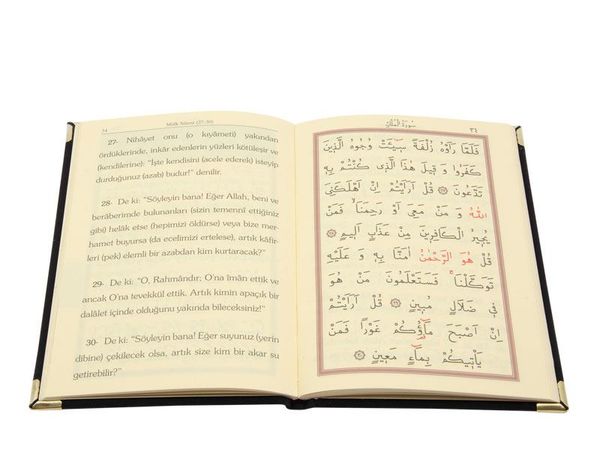 34
Mülk Sûresi (27-30)
27- Nihâyet onu (o kıyâmeti) yakından
ördüklerinde, inkâr edenlerin yüzleri kötüleşir ve
(kendilerine): “İşte kendisini (acele ederek) isteyip
durduğunuz (azab) budur!” denilir.
28- De ki: “Söyleyin bana! Eğer Allah, beni ve
berâberimde bulunanları (sizin temenni ettiğiniz
gibi) helâk etse (hepimizi öldürse) veya bize mer-
hamet buyursa (da ecelimizi ertelese), artık kâfir-
leri (pek) elemli bir azabdan kim kurtaracak?”
29- De ki: “O, Rahmândır; O'na îmân ettik ve
ancak O'na tevekkül ettik. Artık kimin apaçık bir
dalâlet içinde olduğunu yakında bileceksiniz!”
30- De ki: “Söyleyin bana! Eğer suyunuz (yerin
dibine) çekilecek olsa, artık size kim bir akar su
getirebilir?”
سورة الملك
٣٤
فَلَمَّا رَاَوْهُ زُلْفَةً سٓيـَٔتْ وُجُوهُ الَّذٖينَ
كَفَرُوا وَ قٖيلَ هٰذَا الَّذٖى كُنْتُمْ بِهٖ
تَدَّعُونَ ۞ قُلْ اَرَاَيْتُمْ اِنْ اَهْلَكَنِىَ
اللّٰهُ وَ مَنْ مَعِىَ اَوْ رَحِمَنَا ۙ فَمَنْ
يُجٖيرُ الْكَافِرٖينَ مِنْ عَذَابٍ اَلٖيمٍ ۞
قُلْ هُوَ الرَّحْمٰنُ اٰمَنَّا بِهٖ وَ عَلَيْهِ
تَوَكَّلْنَا ۚ فَسَتَعْلَمُونَ مَنْ هُوَ
فٖى ضَلَالٍ مُبٖينٍ ۞ قُلْ اَرَاَيْتُمْ
اِنْ اَصْبَحَ مَٓاؤُكُمْ غَوْرًا فَمَنْ
يَاْتٖيكُمْ بِمَٓاءٍ مَعٖينٍ ۞